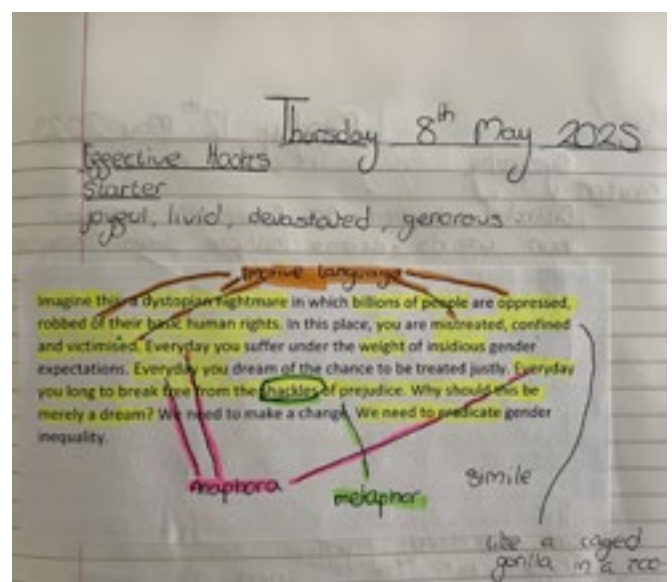 Thursday 8th May 2025
Effective Hooks
Starter
joyful, livid, devastated, generous
Emotive language
Imagine this: a dystopian nightmare in which billions of people are oppressed,
robbed of their basic human rights. In this place, you are mistreated, confined
and victimised. Everyday you suffer under the weight of insidious gender
expectations. Everyday you dream of the chance to be treated justly. Everyday
you long to break free from the shackles of prejudice. Why should this be
merely a dream? We need to make a change. We need to predicate gender
inequality.
Anaphora
metaphor
simile
like a caged
gorilla in a zoo